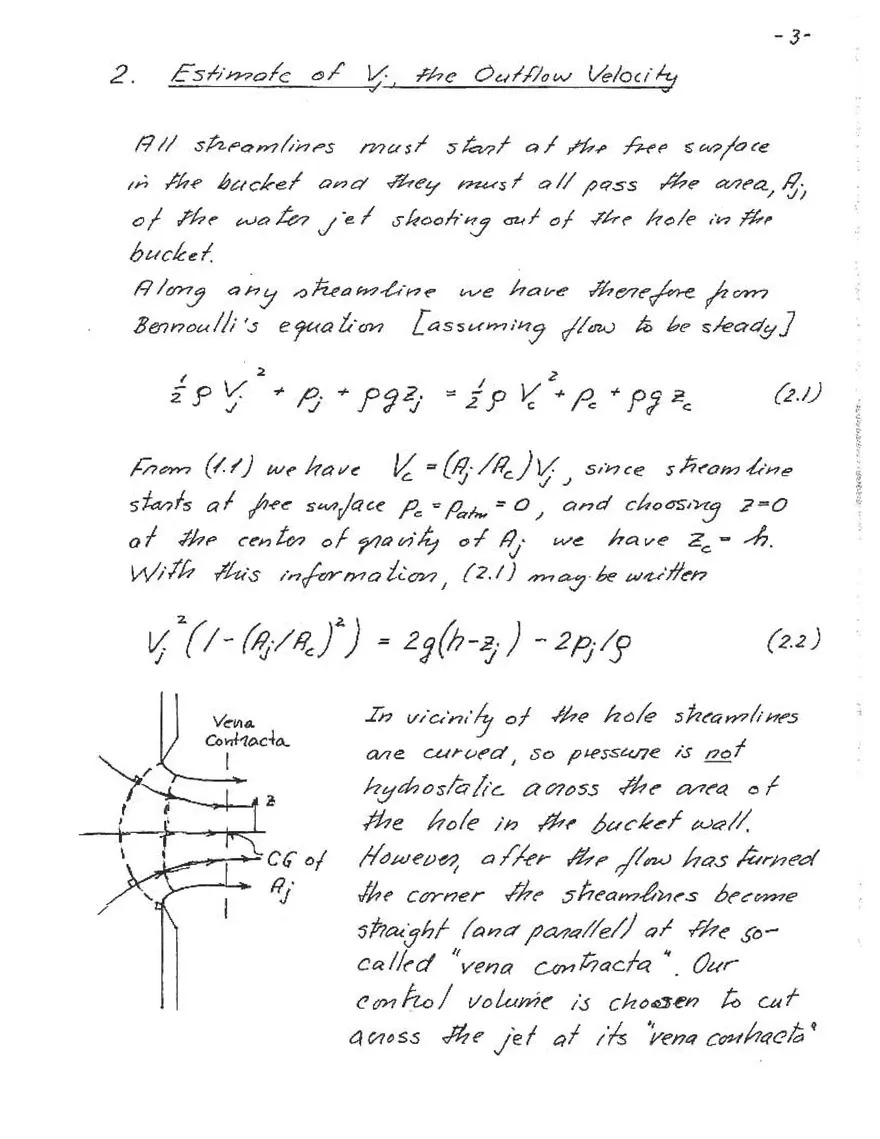 - 3 -
2. Estimate of Vj, the Outflow Velocity
All streamlines must start at the free surface
in the bucket and they must all pass the area, Aj,
of the water jet shooting out of the hole in the
bucket.
Along any streamline we have therefore from
Bernoulli's equation [assuming flow to be steady]
½ ρ Vj² + pj + ρg zj = ½ ρ Vc² + pc + ρg zc (2.1)
From (1.1) we have Vc = (Aj/Ac)Vj, since streamline
starts at free surface pc = patm = 0, and choosing z=0
at the center of gravity of Aj we have zc = h.
With this information, (2.1) may be written
Vj² (1-(Aj/Ac)²) = 2g(h-zj) - 2pj/ρ (2.2)
Vena
Contracta
z
CG of
Aj
In vicinity of the hole streamlines
are curved, so pressure is not
hydrostatic across the area of
the hole in the bucket wall.
However, after the flow has turned
the corner the streamlines become
straight (and parallel) at the so-
called "vena contracta". Our
control volume is choosen to cut
across the jet at its "vena contracta"